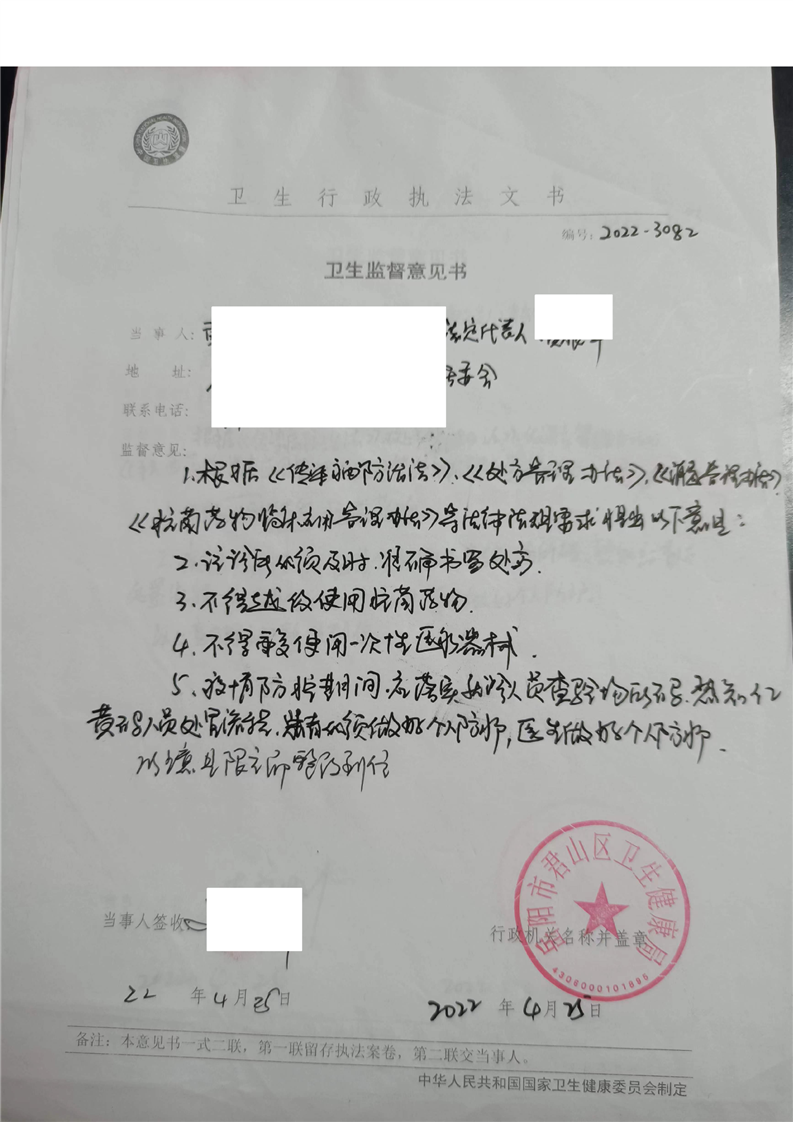 卫生行政执法文书
编号: 2022-3082
卫生监督意见书
当事人: 法定代表人
地 址: 委会
联系电话:
监督意见:
1.根据《传染病防治法》、《处方管理办法》、《消毒管理办法》
《抗菌药物临床应用管理办法》等法律法规要求提出以下意见:
2.该诊所必须及时.准确书写处方.
3.不得越级使用抗菌药物.
4.不得重复使用一次性医疗器械.
5.疫情防控期间.应落实就诊人员查验场所码.熟知红
黄码人员处置流程.患者必须做好个人防护,医生做好个人防护.
以上意见限立即整改到位
当事人签收
行政机关名称并盖章
岳阳市君山区卫生健康局
4306000101895
22 年 4 月 25 日
2022 年 4 月 25 日
备注: 本意见书一式二联，第一联留存执法案卷，第二联交当事人。
中华人民共和国国家卫生健康委员会制定